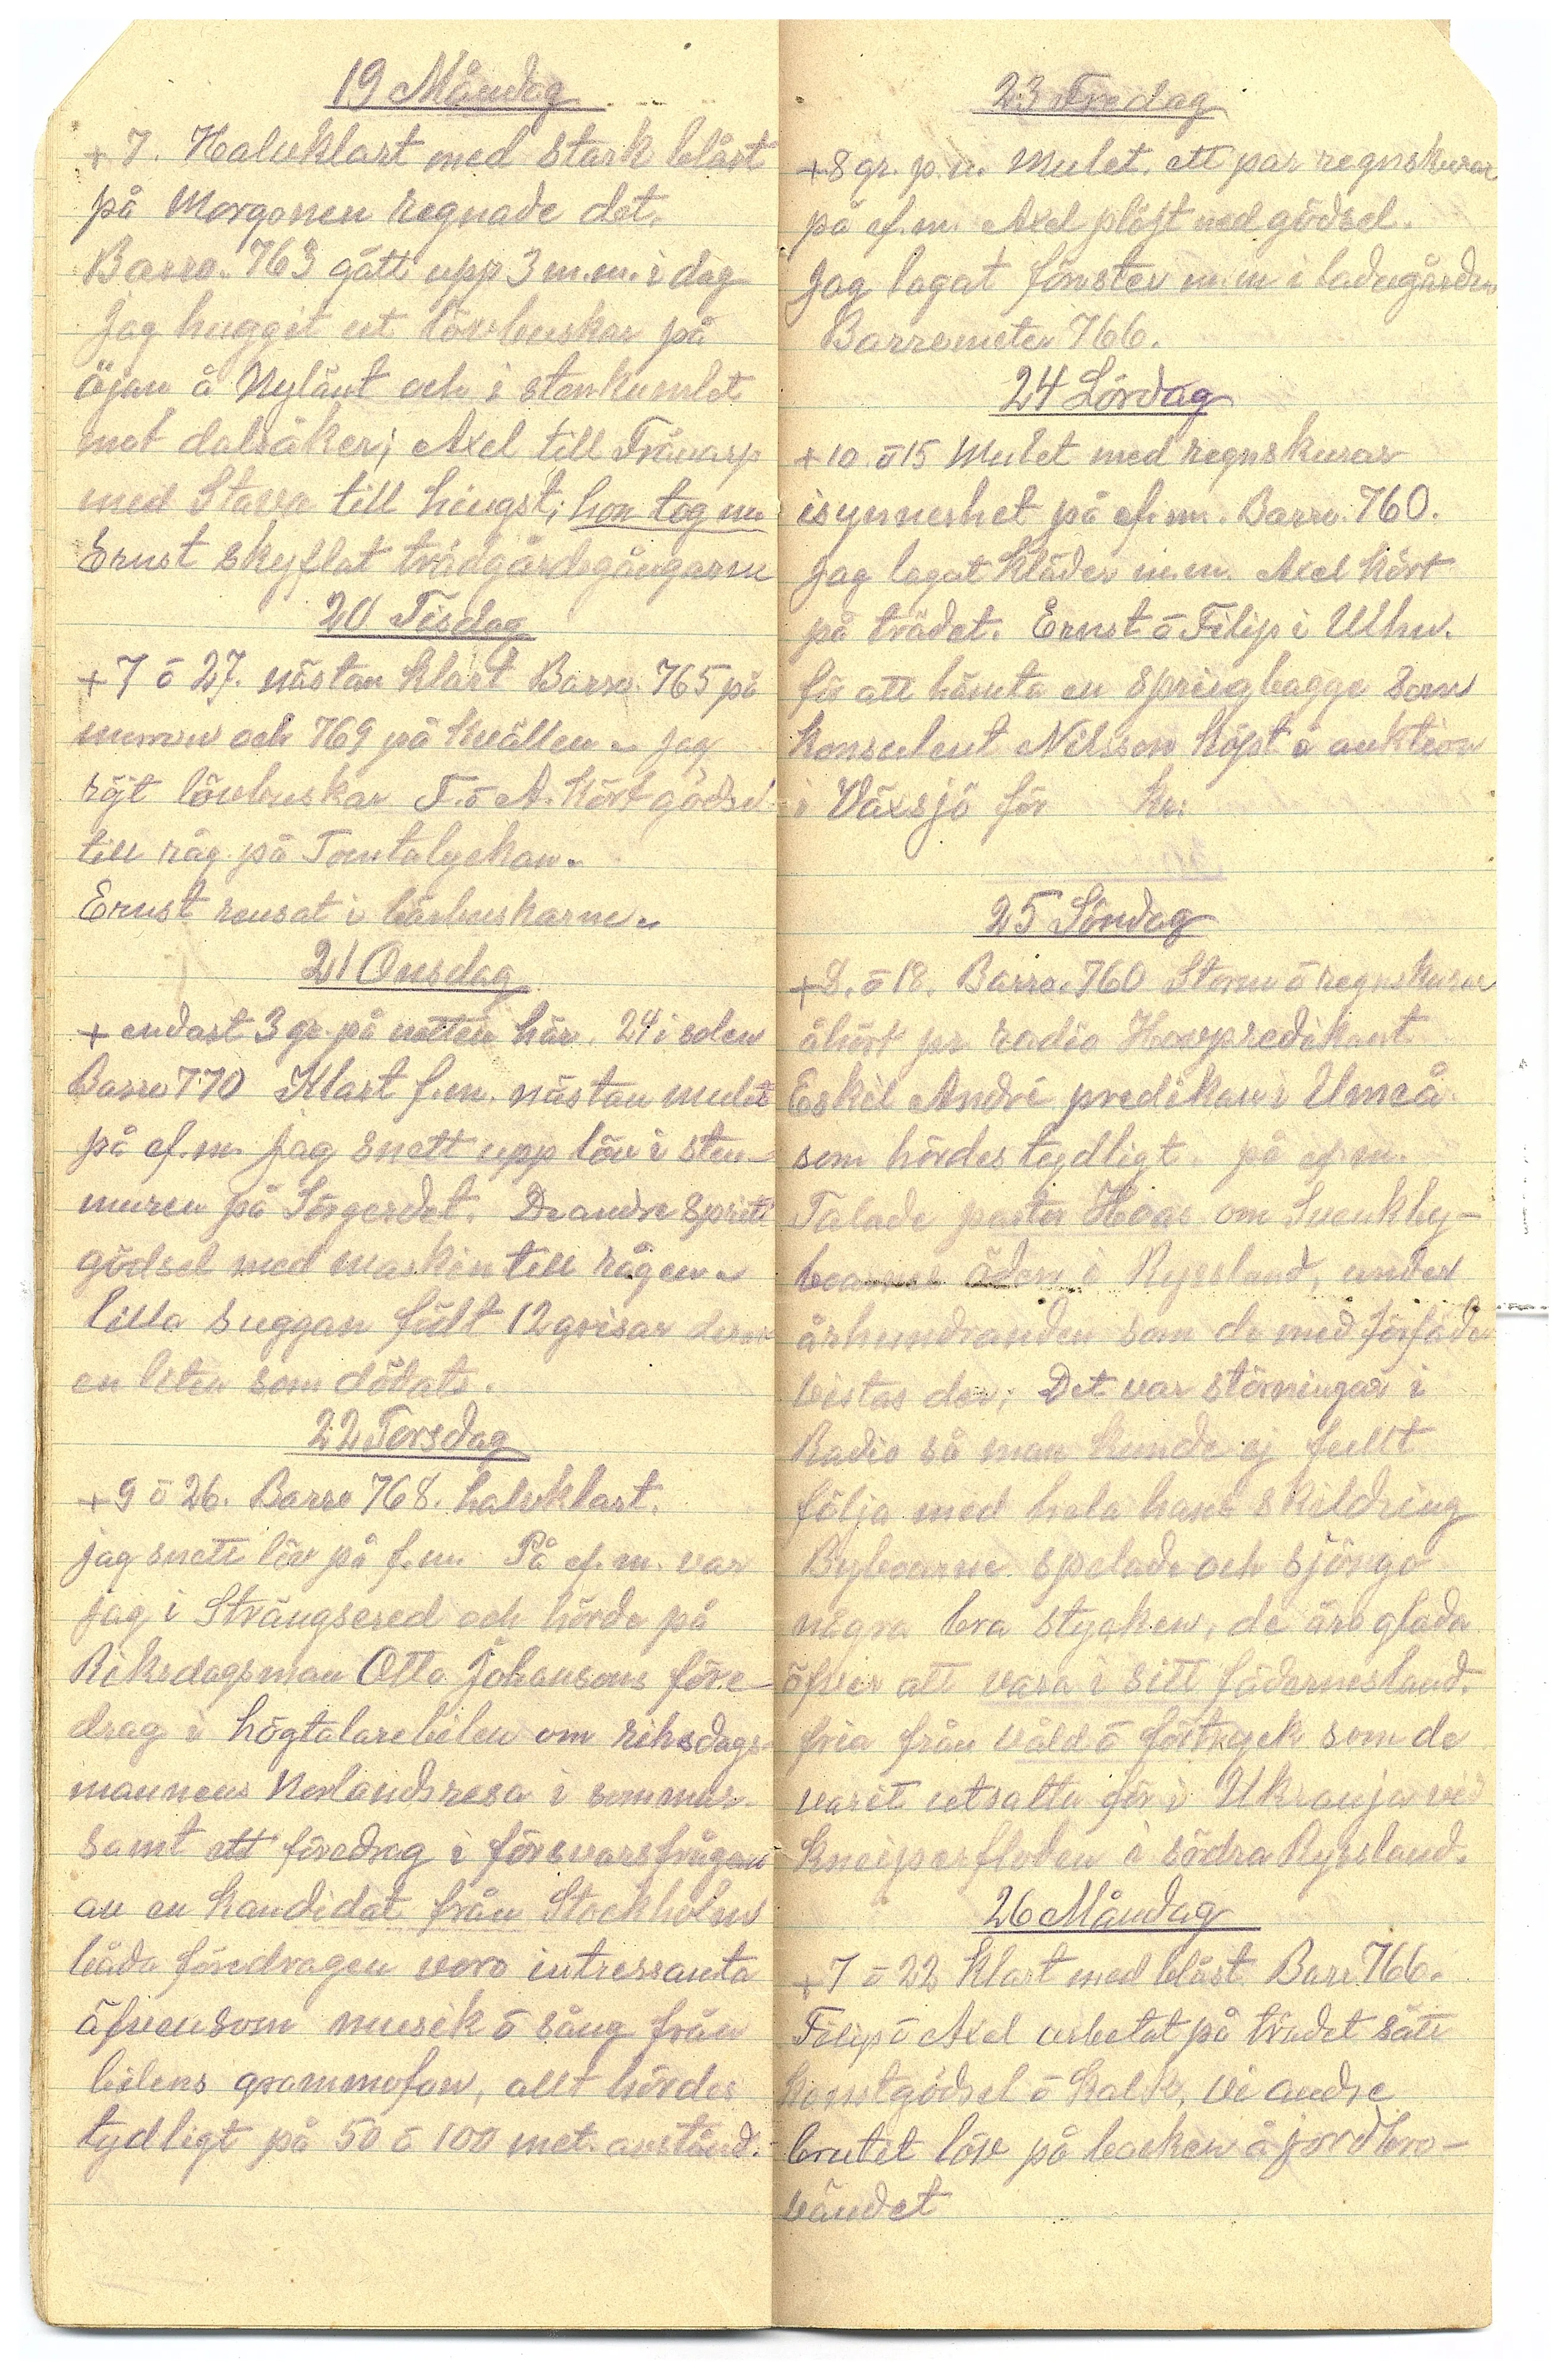 19 Måndag
+7. Halvklart med stark blåst
på Morgonen regnade det.
Barro. 763 gått upp 3 m.m. i dag
Jag huggit ut lövbuskar på
öjan å Nylänt och i stenkumlet
mot dalsåker; Axel till Trävarp
med Stavra till hingst; hon tog en
Ernst skyflat trädgårdsgångarne
20 Tisdag
+7 ō 27. nästan klart Barro. 765 på
morron och 769 på kvällen. Jag
röjt lövbuskar F. ō A. kört gödsel
till råg på Tomtalyckan.
Ernst rensat i bärbuskarne.
21 Onsdag
+ endast 3 gr. på natten här. 24 i solen
Barro 770 Klart f.m. nästan mulet
på ef.m. Jag snett upp löv i sten-
muren på Sörgerdet. De andre spritt
gödsel med maskin till rågen.
lilla suggan födt 12 grisar derav
en liten som dödats.
22 Torsdag
+9 ō 26. Barro 768. halvklart.
jag snett löv på f.m. På ef.m. var
jag i Strängsered och hörde på
Riksdagsman Otto Johansons före-
drag i högtalarebilen om riksdags-
mannens Norlandsresa i sommar.
samt ett föredrag i försvarsfrågan
av en kandidat från Stockholm
båda föredragen voro intressanta
äfvensom musik ō sång från
bilens grammofon, allt hördes
tydligt på 50 ō 100 met. avstånd.
23 Fredag
+8 gr. p.n. Mulet. ett par regnskurar
på ef.m. Axel plöjt ned gödsel.
Jag lagat fönster m.m i ladugården
Barrometer 766.
24 Lördag
+10 ō 15 Mulet med regnskurar
isynnerhet på ef.m. Barro. 760.
Jag lagat kläder m.m. Axel kört
på trädet. Ernst ō Filip i Ulhn.
för att hämta en springbagge som
konsulent Nilsson köpt å auktion
i Växsjö för kr:
25 Söndag
+8. ō 18. Barro. 760 Storm ō regnskurar
åhört pr radio Hovpredikant
Eskil André predikan i Umeå
som hördes tydligt. på ef.m.
Talade pastor Hoas om Svenkby-
boarnes öden i Ryssland, under
århundranden som de med förfäder
vistas der; Det var störningar i
Radio så man kunde ej fullt
följa med hela hans skildring
Byboarne spelade och sjöngo
några bra stycken, de äro glada
öfver att vara i sitt fädernesland.
fria från våld ō förtryck som de
varit utsatta för i Ukranja vid
Kneiperfloden i södra Ryssland.
26 Måndag
+7 ō 22 Klart med blåst Barr 766.
Filip ō Axel arbetat på trädet sått
konstgödsel ō kalk, vi andre
brutet löv på backen å jordbro-
vändet